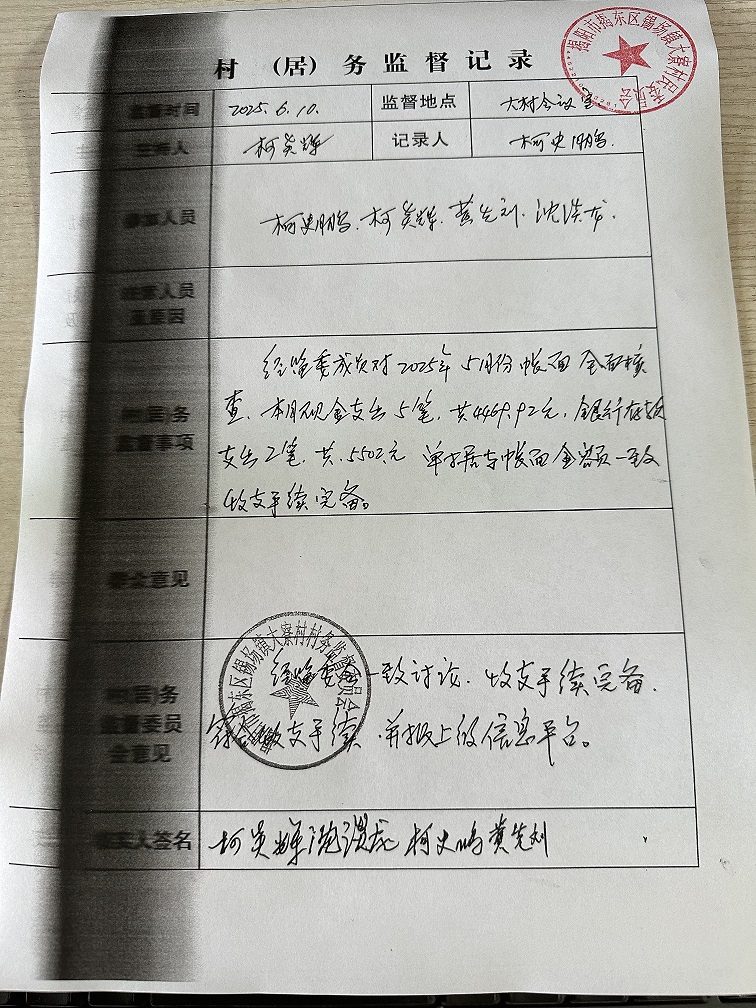 揭阳市揭东区锡场镇大寮村民委员会
村（居）务监督记录
监督时间 2025.6.10. 监督地点 大村会议室
主持人 柯英辉 记录人 柯史鹏.
参加人员 柯史鹏、柯英辉、黄先刘、沈洪龙.
缺席人员
及原因
经监委成员对2025年5月份帐面全面核
查，本月现金支出5笔，共4469.92元，银行存款
村(居)务
监督事项
支出2笔，共5502元 单据与帐面金额一致
收支手续完备。
群众意见
揭东区锡场镇大寮村村务监督委员会
经监委会一致讨论，收支手续完备，
村(居)务
监督委员
会意见
符合收支手续，并报上级信息平台。
人签名 柯英辉 沈洪龙 柯史鹏 黄先刘